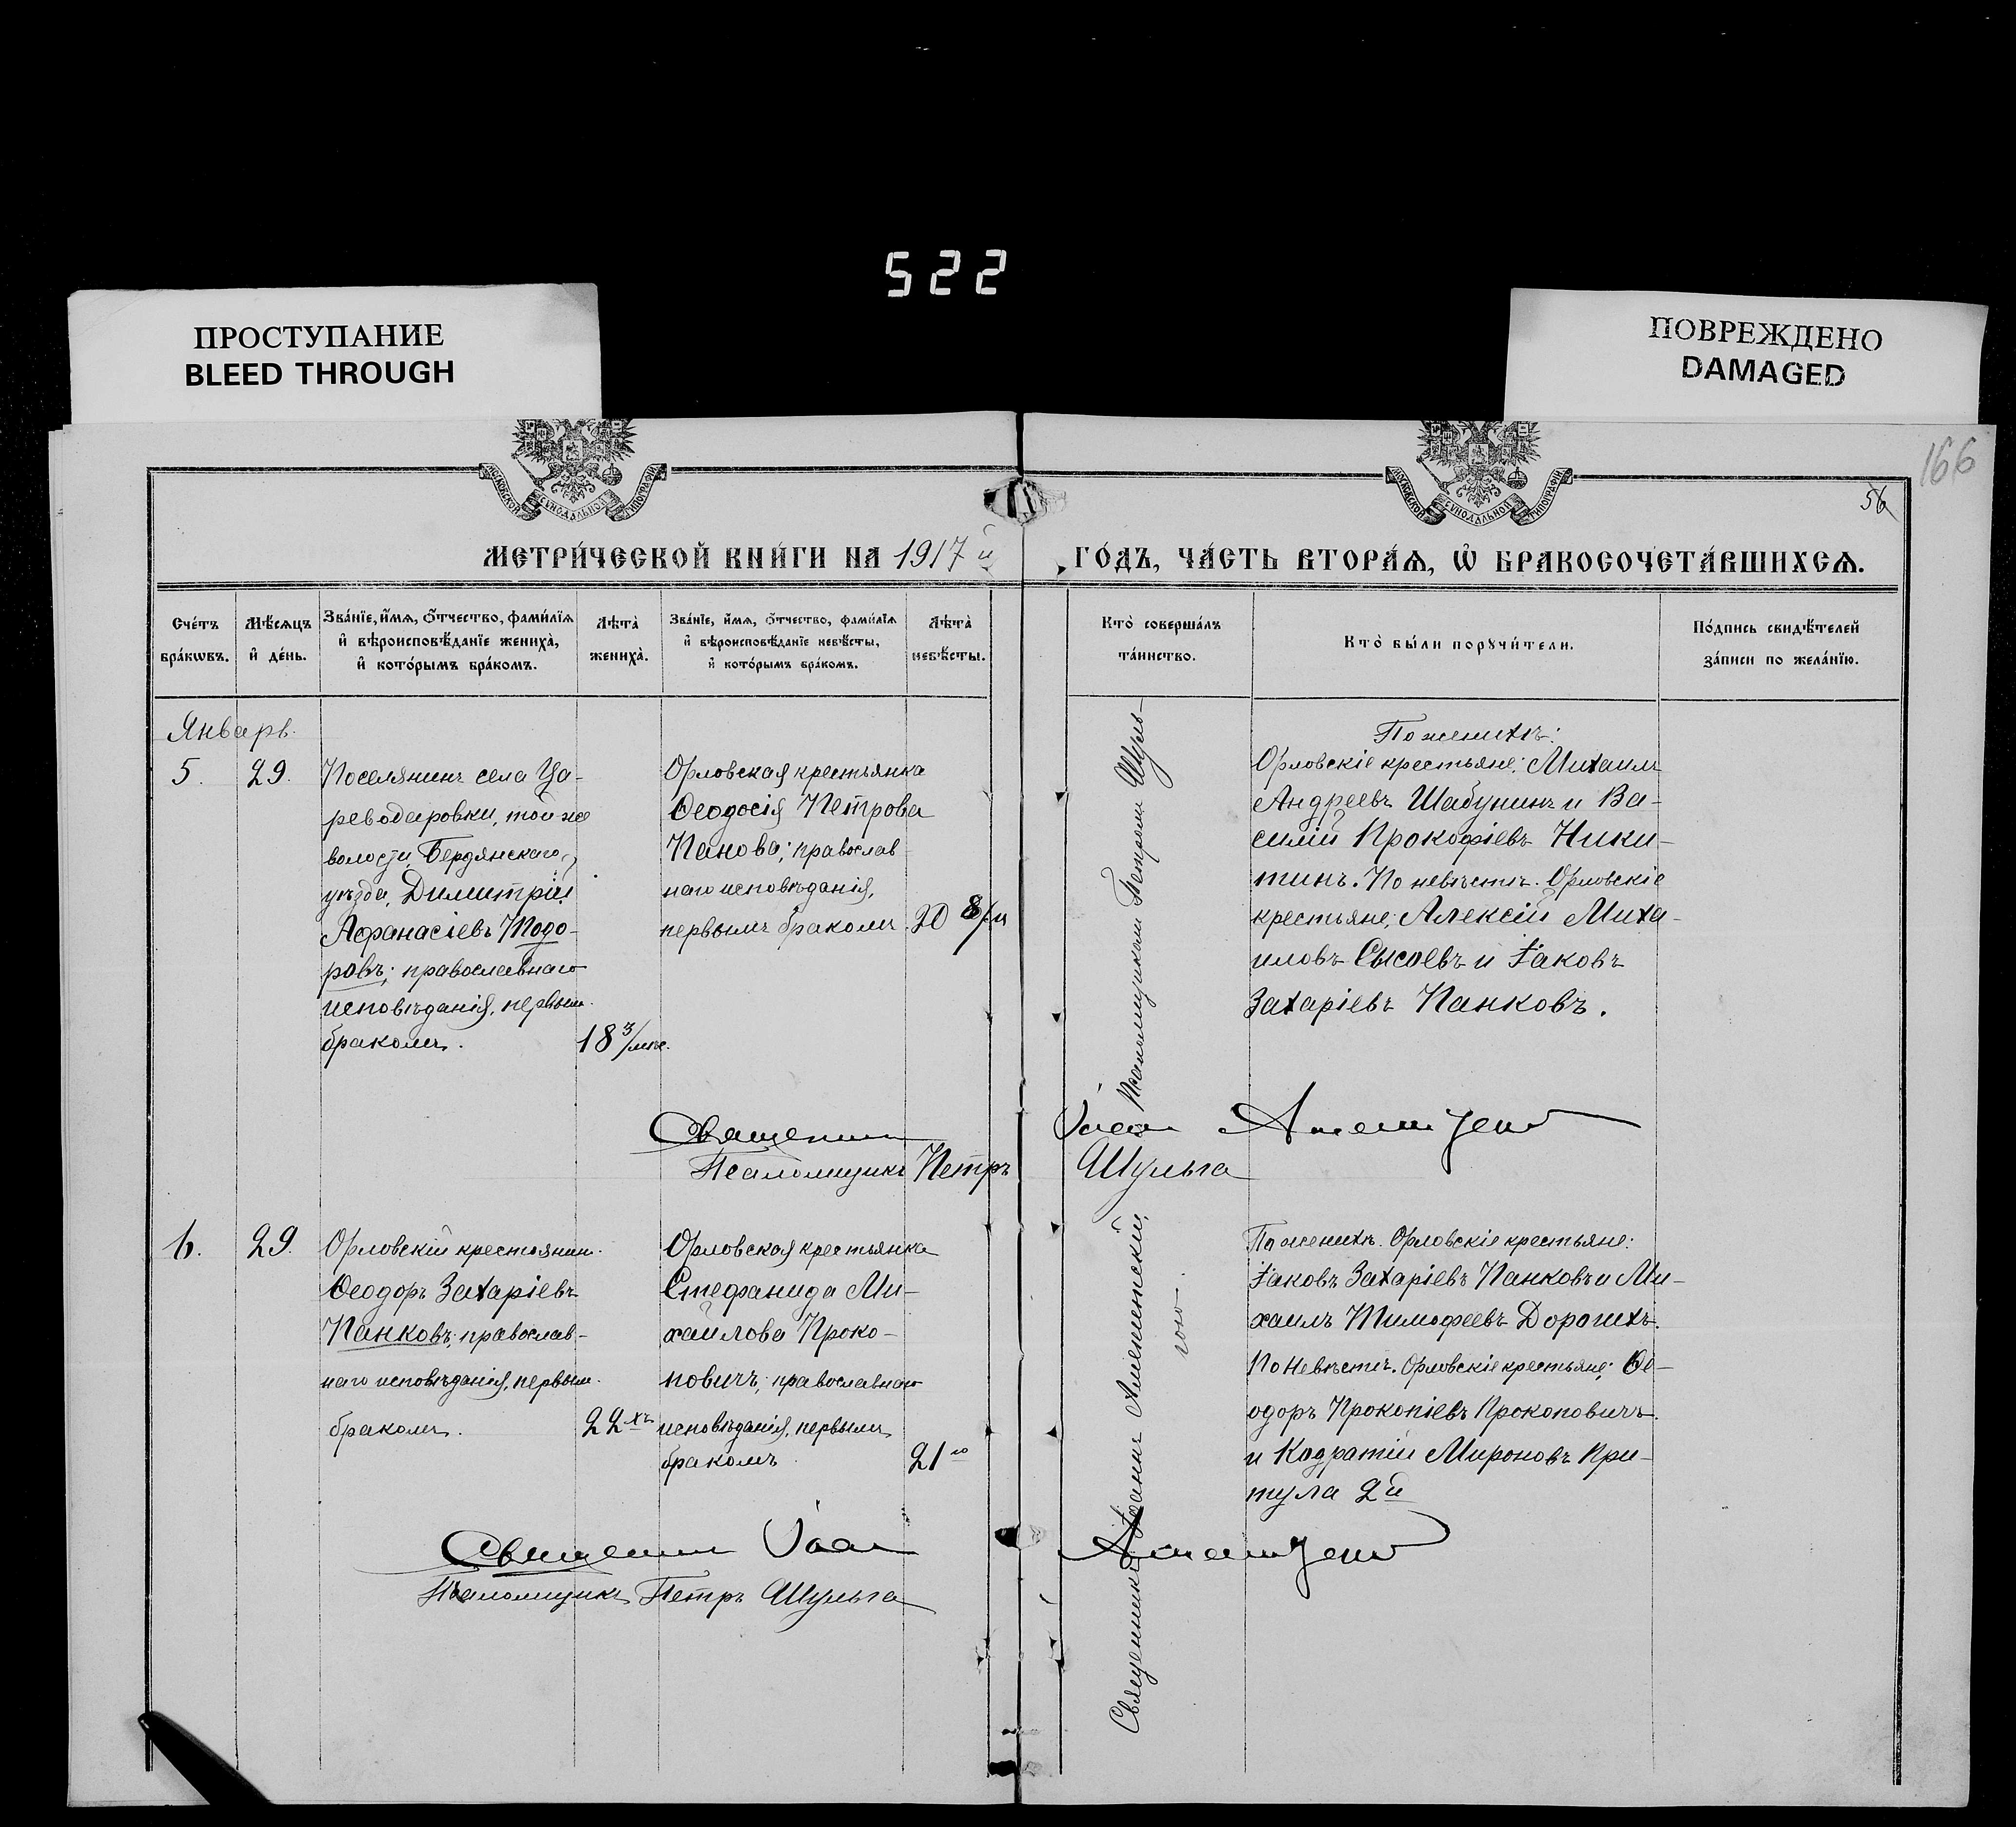 522
ПРОСТУПАНИЕ
BLEED THROUGH
ПОВРЕЖДЕНО
DAMAGED
166
56
МЕТРИ́ЧЕСКОЙ КНИ́ГИ НА 1917 й
ГО́ДЪ, ЧА́СТЬ ВТОРА́Ѧ, Ѽ БРАКОСОЧЕТА́ВШИХСѦ.
Сче́тъ бра́кѡвъ.
Мѣ́сяцъ и҆ де́нь.
Зва́нїе, и҆́мѧ, ѻ҆́тчество, фами́лїѧ и҆ вѣроисповѣ́данїе жениха̀, и҆ кото́рымъ бра́комъ.
Лѣта̀ жениха̀.
Зва́нїе, и҆́мѧ, ѻ҆́тчество, фами́лїѧ и҆ вѣроисповѣ́данїе невѣ́сты, и҆ кото́рымъ бра́комъ.
Лѣта̀ невѣ́сты.
Кто̀ соверша́лъ та́инство.
Кто̀ бы́ли порꙋчи́тели.
По́дпись свидѣ́телей за́писи по жела́нїю.
Январь.
5.
29.
Поселянинъ села Ца-
реводаровки, той-же
волости, Бердянскаго
уѣзда, Димитрій
Афанасіевъ Тодо-
ровъ; православнаго
исповѣданія, первым.
бракомъ.
18 3/мѣс.
Орловская крестьянка
Ѳеодосія Петрова
Панова; православ-
наго исповѣданія,
первымъ бракомъ.
20 8/м
По женихѣ:
Орловскіе крестьяне: Михаилъ
Андреевъ Шабунинъ и Ва-
силій Прокофіевъ Ники-
тинъ. По невѣстѣ. Орловскіе
крестьяне; Алексій Миха-
иловъ Сысоевъ и Іаковъ
Захаріевъ Панковъ.
Священник Іоан
Псаломщикъ Петръ Шульга
6.
29.
Орловскій крестьянин.
Ѳеодоръ Захаріевъ
Панковъ; православ-
наго исповѣданія, первым.
бракомъ.
22 хъ
Орловская крестьянка
Стефанида Ми-
хайлова Проко-
повичъ; православнаго
исповѣданія, первымъ
бракомъ
21 го
По женихѣ. Орловскіе крестьяне:
Іаковъ Захаріевъ Панковъ и Ми-
хаилъ Тимофеевъ Дорошъ.
По невѣстѣ. Орловскіе крестьяне; Ѳе-
одоръ Прокопіевъ Прокоповичъ.
и Кодратій Мироновъ При-
тула 2й
Священникъ Іоаннъ
Псаломщикомъ Петромъ Шуль-
гою.
Священник Іоан
Псаломщикъ Петръ Шульга